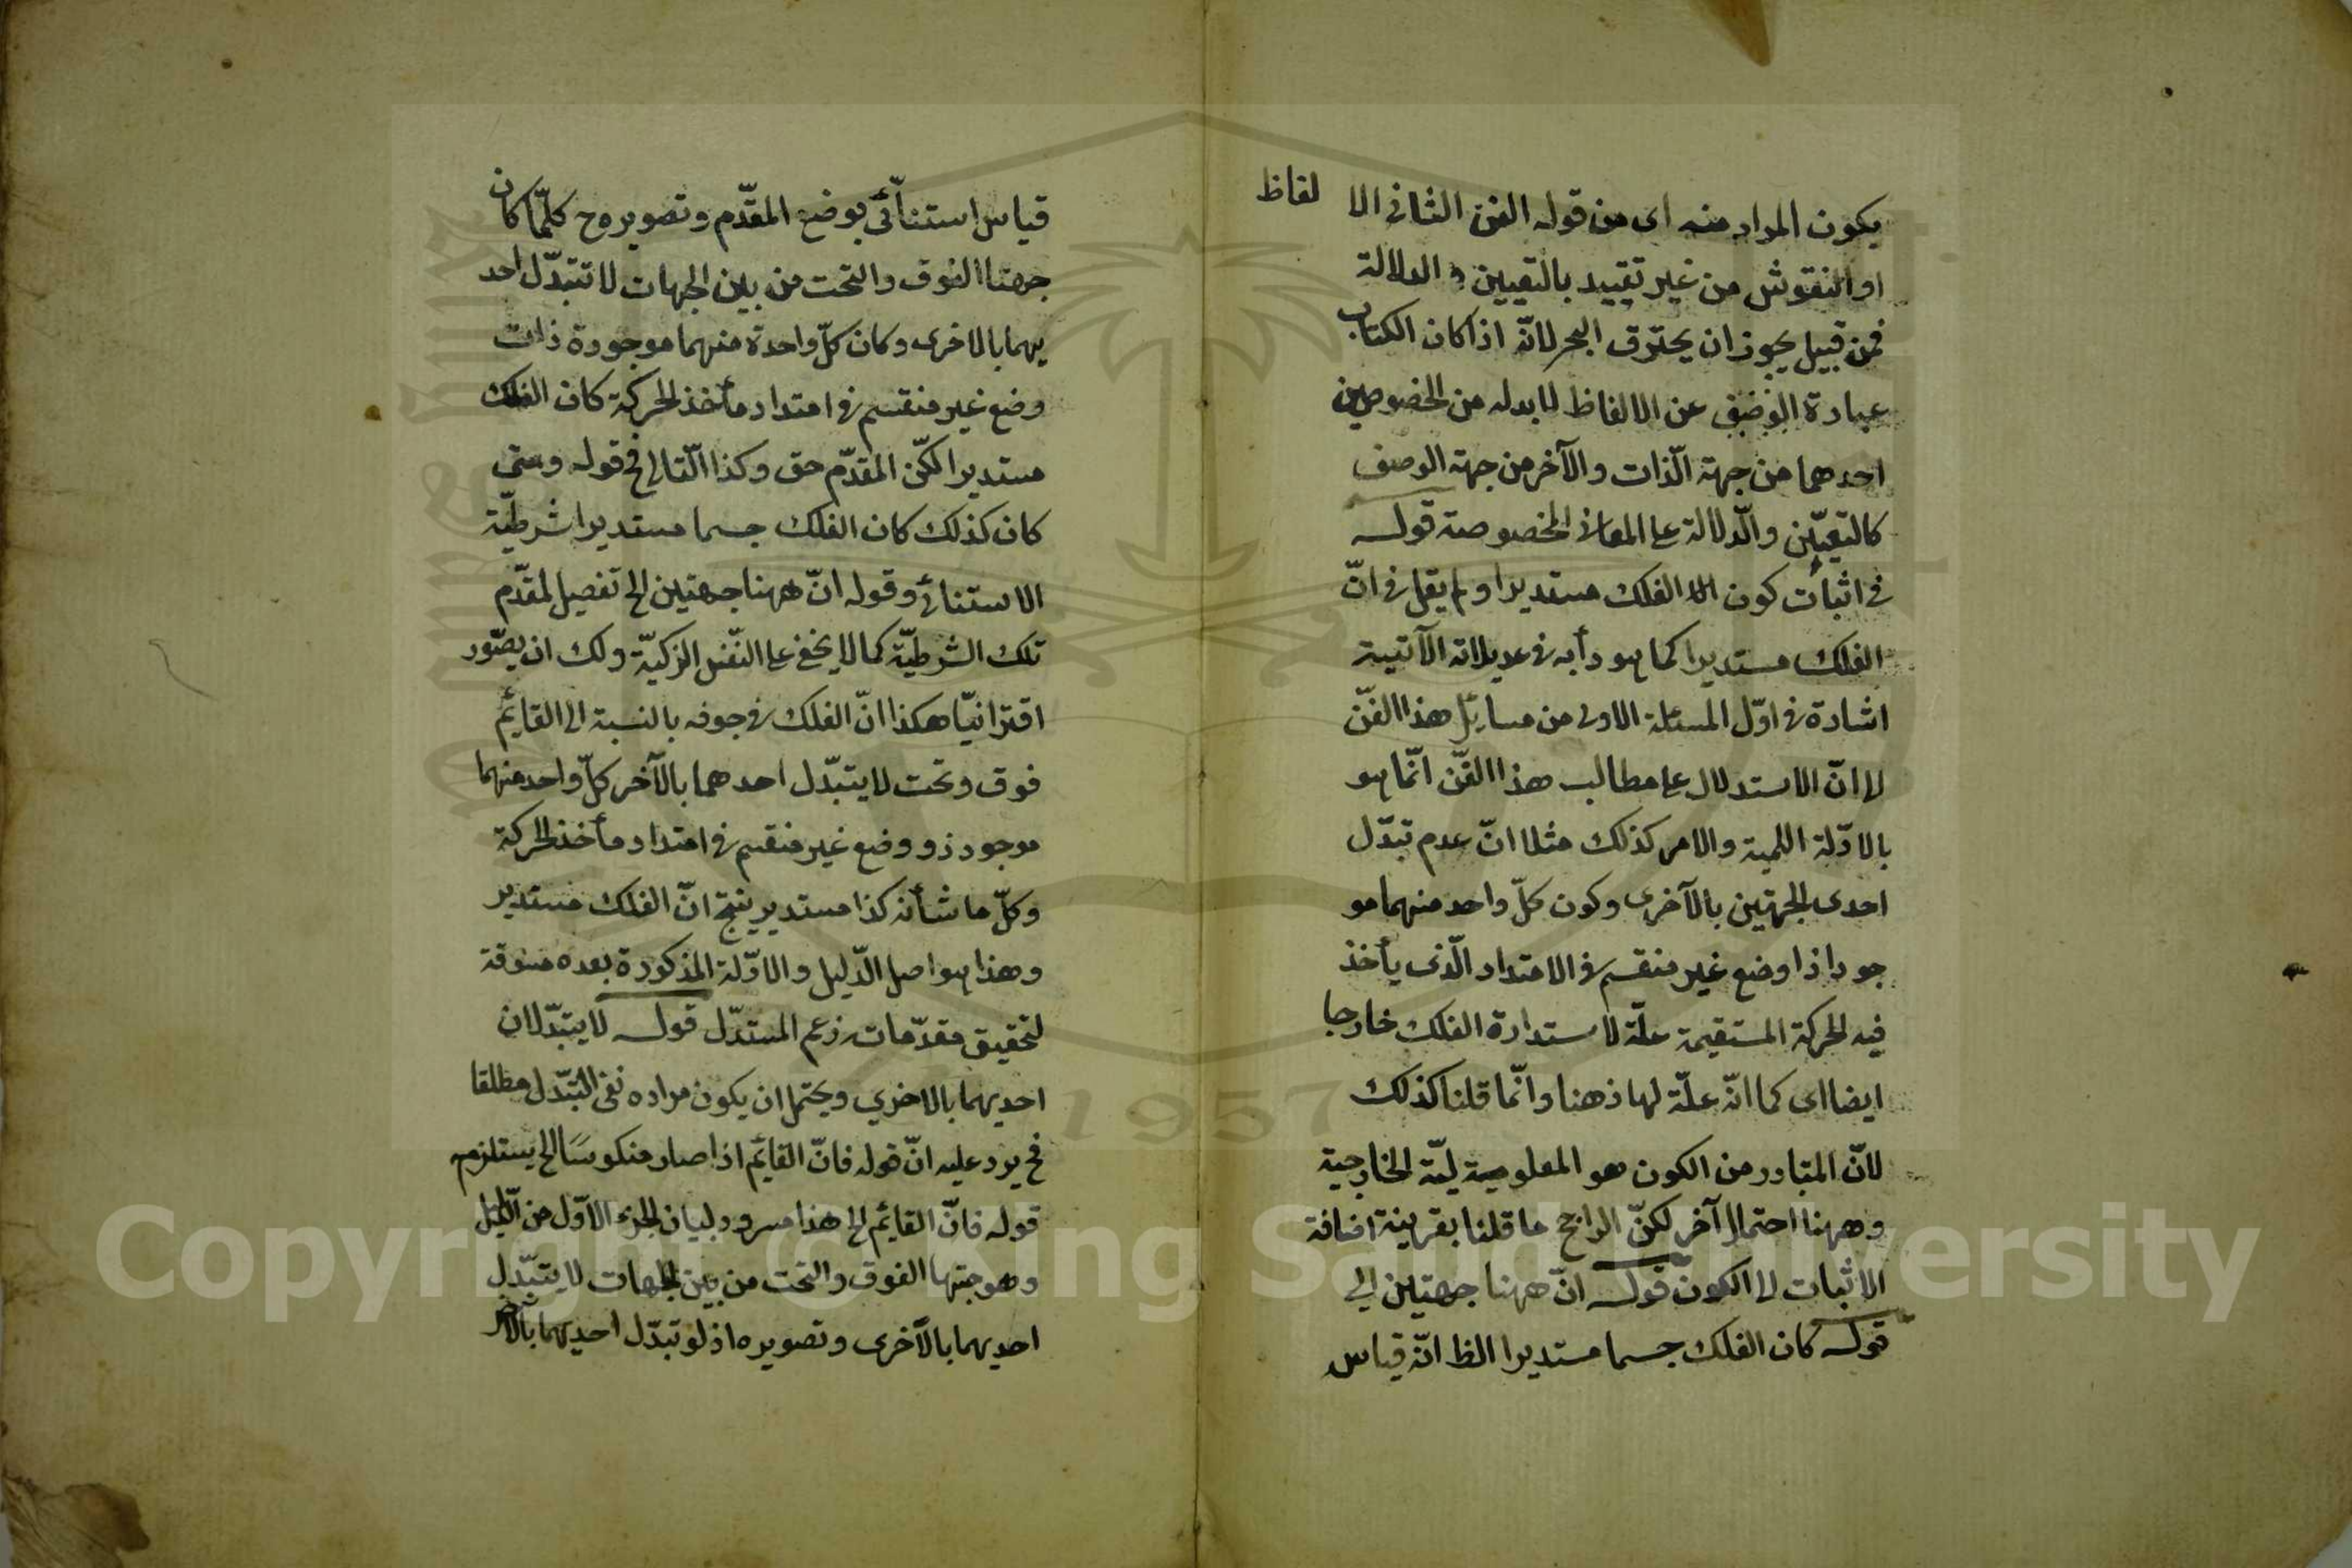 يكون المراد منه اى من قوله الفن الثانى الا لفاظ
او النقوش من غير تقييد بالتعيين و الدلالة
فمن قبيل يجوز ان يحترق البحر لانّه اذا كان الكتاب
عبارة عن الالفاظ لا بد له من الخصوصين
احدهما من جهة الذّات والآخر من جهة الوصف
كالتعيّن والدّلالة على المعانى المخصوصة قوله
فى اثبات كون الفلك مستديرا ولم يقل فى انّ
الفلك مستديرا كما هو دأبه فى عديلاته الآتية
اشارة فى اوّل المسئلة الاولى من مسائل هذا الفنّ
الى انّ الاستدلال على مطالب هذا الفنّ انّما هو
بالادّلة اللمية والامر كذلك مثلا انّ عدم تبدّل
احدى الجهتين بالآخرى وكون كلّ واحد منهما مو
جودا ذا وضع غير منقسم فى الامتداد الّذى يأخذ
فيه الحركة المستقيمة علّة لاستدارة الفلك خارجا
ايضا اى كما انّه علّة لها ذهنا وانّما قلنا كذلك
لانّ المتبادر من الكون هو المعلومية لميّة الخارجية
وههنا احتمال آخر لكنّ الراجح ما قلنا بقرينة اضافة
الاثبات الى الكون قوله انّ ههنا جهتين الى
قوله كان الفلك جسما مستديرا الظ انّه قياس
قياس استثنائى بوضع المقدّم وتصويره ح كلّما كان
جهتا الفوق والتحت من بين الجهات لا تتبدّل احد
يهما بالاخرى وكان كلّ واحدة منهما موجودة ذات
وضع غير منقسم فى امتداد مأخذ الحركة كان الفلك
مستديرا لكنّ المقدّم حق وكذا التّالى فح قوله ومتى
كان كذلك كان الفلك جسما مستديرا شرطيّة
الاستثنائى وقوله انّ ههنا جهتين الخ تفصيل لمقدّم
تلك الشرطيّة كما لا يخفى على النّفس الزكيّة ولك ان يصّور
اقترانيّا هكذا انّ الفلك فى جوفه بالنسبة الى القائم
فوق وتحت لا يتبدّل احدهما بالآخر كلّ واحد منهما
موجود ذو وضع غير منقسم فى امتداد مأخذ الحركة
وكلّ ما شأنه كذا مستدير ينتج انّ الفلك مستدير
وهذا هو اصل الدّليل والادّلة المذكورة بعده مسوقة
لتحقيق مقدّمات زعم المستدّل قوله لا يتبدّلان
احديهما بالاخرى ويحتمل ان يكون مراده نفى التّبدّل مطلقا
فح يرد عليه انّ قوله فانّ القائم اذا صار منكوسًا الخ يستلزم
قوله فانّ القائم الخ هذا مسرود لبيان الجزء الاوّل من الدّليل
وهو جهتها الفوق والتحت من بين الجهات لا يتبّدل
احديهما بالآخرى وتصويره اذ لو تبدّل احديهما بالآخر
Copyright © King Saud University
1957